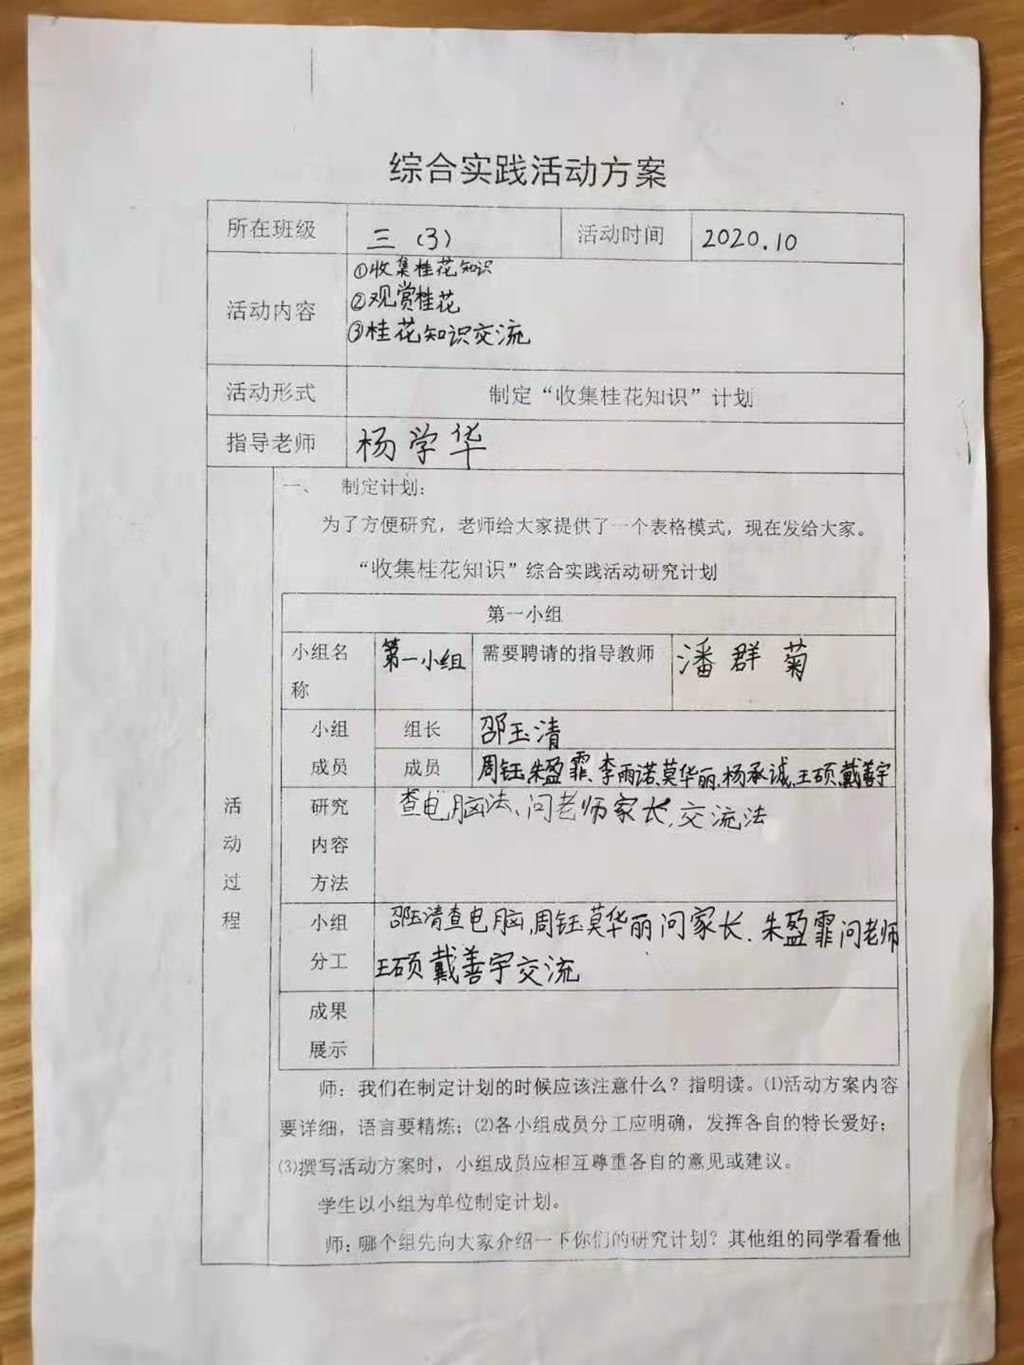 综合实践活动方案
所在班级 三（3） 活动时间 2020.10
活动内容 ①收集桂花知识
②观赏桂花
③桂花知识交流
活动形式 制定“收集桂花知识”计划
指导老师 杨学华
活动过程
一、 制定计划：
为了方便研究，老师给大家提供了一个表格模式，现在发给大家。
“收集桂花知识”综合实践活动研究计划
第一小组
小组名称 第一小组 需要聘请的指导教师 潘群菊
小组成员 组长 邵玉清
成员 周钰、朱盈霏、李雨诺、莫华丽、杨承诚、王硕、戴善宇
研究内容方法 查电脑法、问老师家长，交流法
小组分工 邵玉清查电脑，周钰莫华丽问家长．朱盈霏问老师
王硕戴善宇交流
成果展示
师：我们在制定计划的时候应该注意什么？指明读。⑴活动方案内容
要详细，语言要精炼；⑵各小组成员分工应明确，发挥各自的特长爱好；
⑶撰写活动方案时，小组成员应相互尊重各自的意见或建议。
学生以小组为单位制定计划。
师：哪个组先向大家介绍一下你们的研究计划？其他组的同学看看他